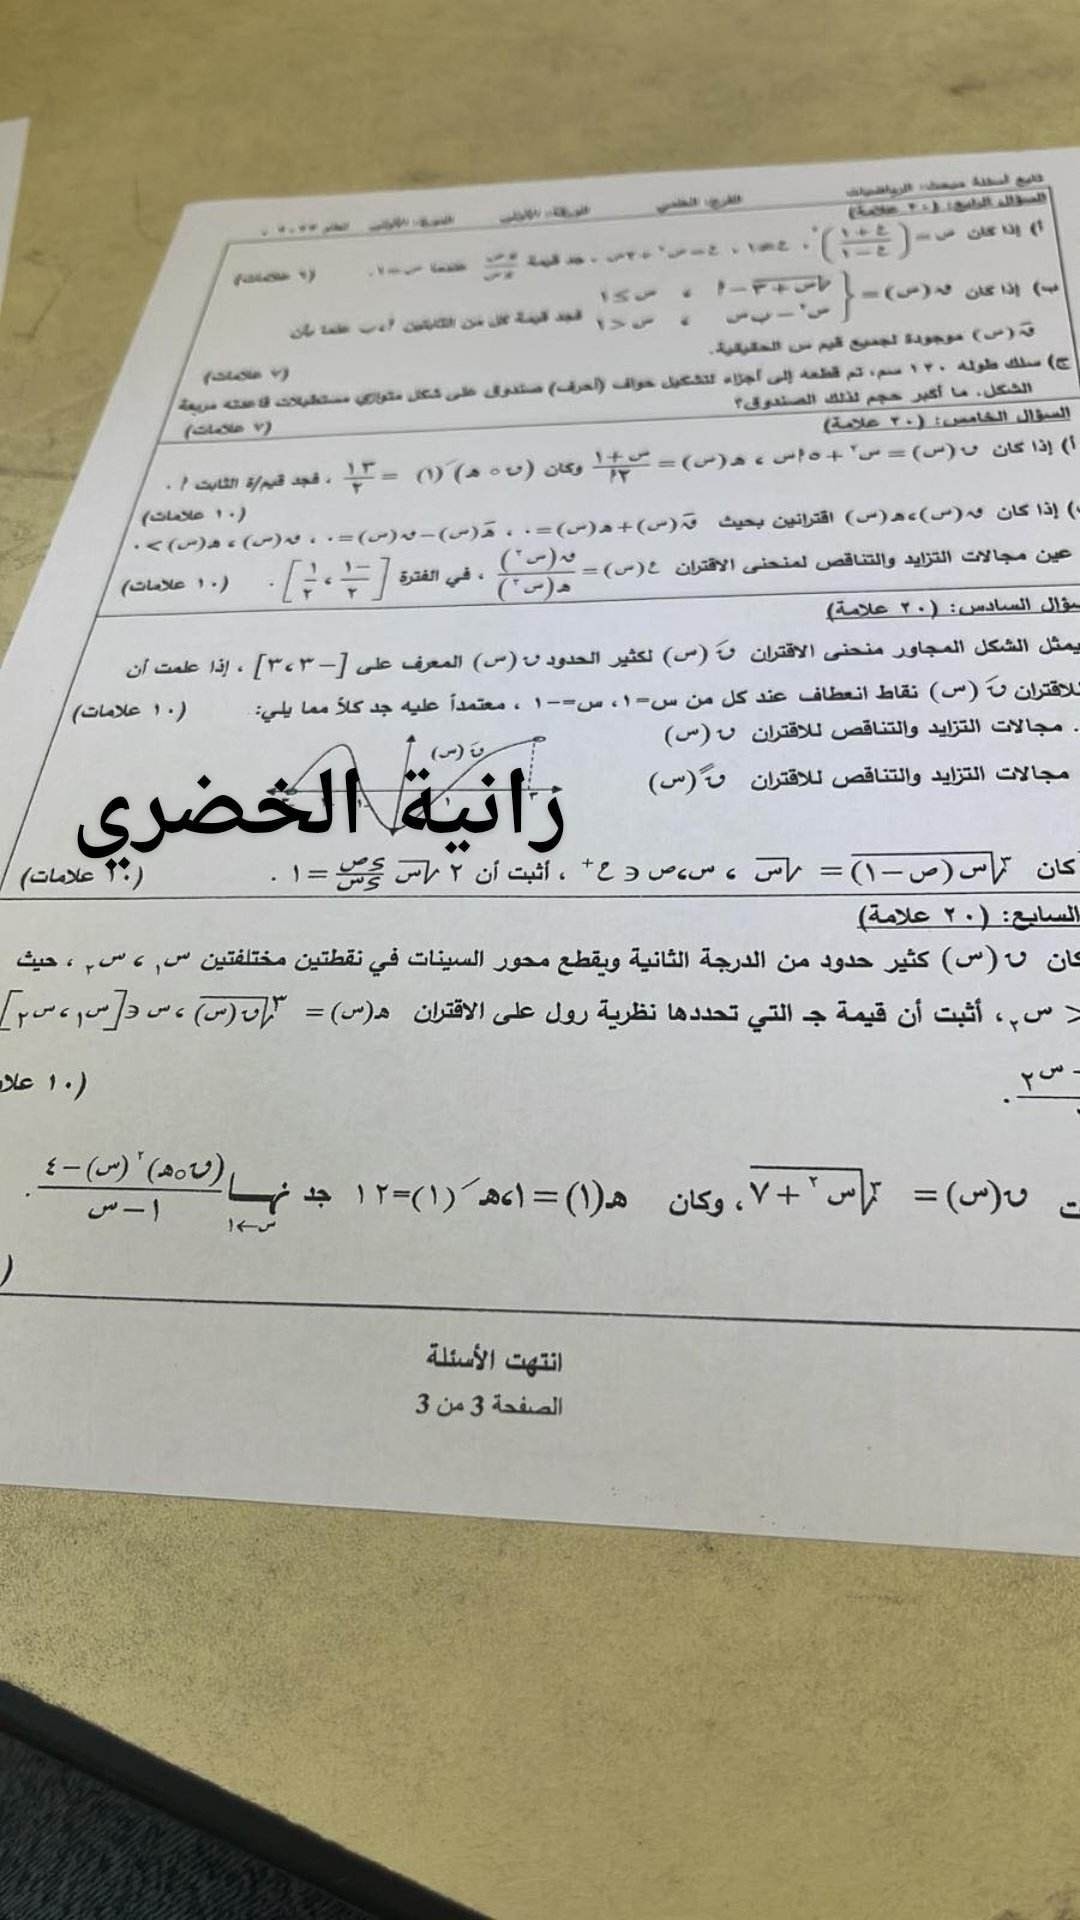 تابع أسئلة مبحث: الرياضيات الفرع: العلمي الورقة: الأولى الدورة: الأولى
السؤال الرابع: (٢٠ علامة)
أ) إذا كان ص = (ع+١ / ع−١) ، ع ≠ ١ ، جد قيمة ءص/ءس عندما س=١. (٦ علامات)
ب) إذا كان ق(س) = { √س+٣ − أ ، س ≤ ١
س٢ − ب س ، س > ١ فجد قيمة كل من الثابتين أ، ب علما بأن
قَ(س) موجودة لجميع قيم س الحقيقية. (٧ علامات)
ج) سلك طوله ١٢٠ سم، تم قطعه إلى أجزاء لتشكيل حواف (أحرف) صندوق على شكل متوازي مستطيلات قاعدته مربعة
الشكل. ما أكبر حجم لذلك الصندوق؟ (٧ علامات)
السؤال الخامس: (٢٠ علامة)
أ) إذا كان ق(س) = س٢ + ٥أس ، هـ(س) = س+١ / ٢أ وكان (ق ○ هـ)َ(١) = ١٣/٢ ، فجد قيم/ة الثابت أ . (١٠ علامات)
إذا كان ق(س)، هـ(س) اقترانين بحيث قَ(س)+هـ(س)=٠ ، هـَ(س)−ق(س)=٠ ، ق(س)، هـ(س)>٠
عين مجالات التزايد والتناقص لمنحنى الاقتران ع(س) = ق(س٢) / هـ(س٢) ، في الفترة [−١/٢ ، ١/٢] . (١٠ علامات)
سؤال السادس: (٢٠ علامة)
يمثل الشكل المجاور منحنى الاقتران قَ(س) لكثير الحدود ق(س) المعرف على [−٣، ٣] ، إذا علمت أن
للاقتران قَ(س) نقاط انعطاف عند كل من س=١، س=−١ ، معتمداً عليه جد كلاً مما يلي: (١٠ علامات)
. مجالات التزايد والتناقص للاقتران ق(س)
مجالات التزايد والتناقص للاقتران قً(س)
قَ(س)
رانية الخضري
كان ٣√س(ص−١) = √س ، س،ص ∈ ح+ ، أثبت أن ٢√س ءص/ءس = ١ . (١٠ علامات)
السابع: (٢٠ علامة)
كان ق(س) كثير حدود من الدرجة الثانية ويقطع محور السينات في نقطتين مختلفتين س١ ، س٢ ، حيث
< س٢ ، أثبت أن قيمة جـ التي تحددها نظرية رول على الاقتران هـ(س) = ٣√ق(س) ، س ∈ [س١، س٢]
س٢ . (١٠ علا
ق(س) = ٣√س٢ + ٧ ، وكان هـ(١)=١، هـَ(١)=١٢ جد نهـــا س←١ (ق○هـ)٢(س)−٤ / س−١ .
انتهت الأسئلة
الصفحة 3 من 3